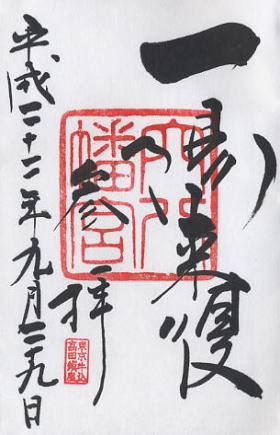 一陽来復
参拝
平成二十二年九月二十九日
穴八
幡宮
東京牛込
高田鎮座